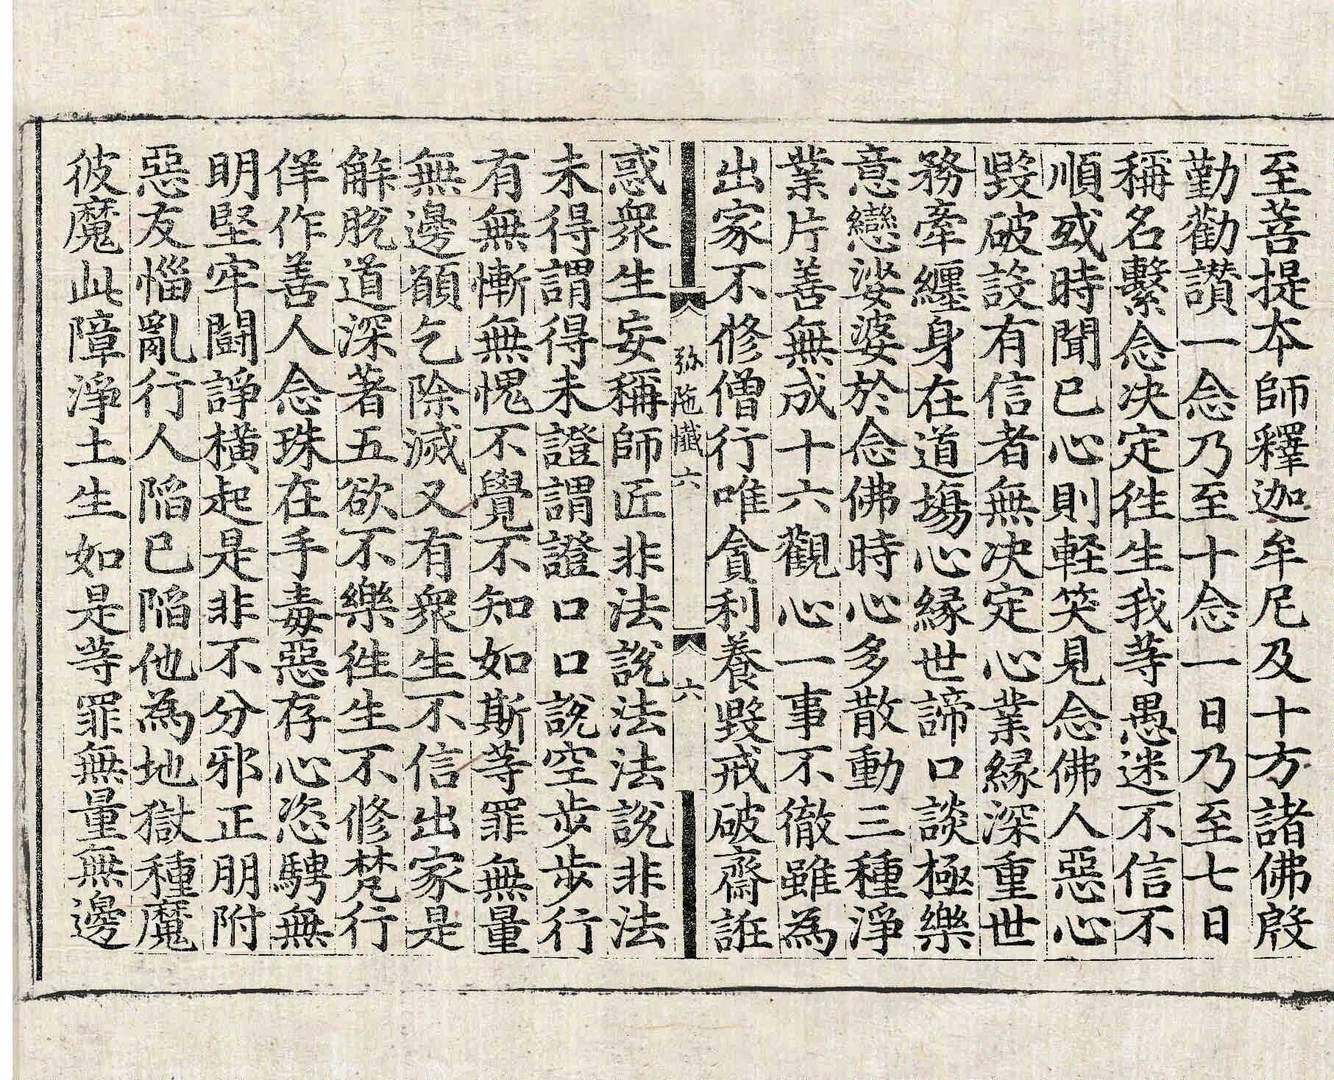 至菩提本師釋迦牟尼及十方諸佛慇
勤勸讚一念乃至十念一日乃至七日
稱名繫念决定徃生我等愚迷不信不
順或時聞已心則軽笑見念佛人惡心
毀破設有信者無决定心業縁深重世
務牽纏身在道塲心縁世諦口談極樂
意戀娑婆於念佛時心多散動三種淨
業片善無成十六觀心一事不徹雖為
出家不修僧行唯貪利養毀戒破齋誑
弥陁懺六
六
惑衆生妄稱師匠非法說法法說非法
未得謂得未證謂證口口說空步步行
有無慚無愧不覺不知如斯等罪無量
無邊願乞除滅又有衆生不信出家是
解脫道深著五欲不樂徃生不修梵行
佯作善人念珠在手毒惡存心恣騁無
明堅牢鬪諍橫起是非不分邪正朋附
惡友惱亂行人陷已陷他為地獄種魔
彼魔此障淨土生如是等罪無量無邊